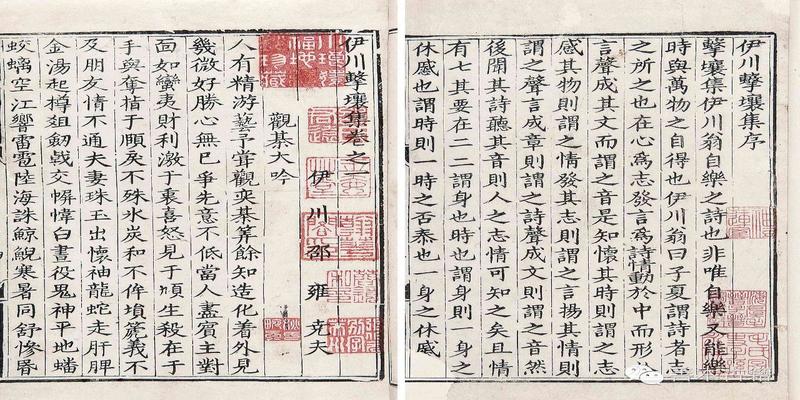 伊川擊壤集序
擊壤集伊川翁自樂之詩也非唯自樂又能樂
時與萬物之自得也伊川翁曰子夏謂詩者志
之所之也在心爲志發言爲詩情動於中而形於
言聲成其文而謂之音是知懷其時則謂之志
感其物則謂之情發其志則謂之言揚其情則
謂之聲言成章則謂之詩聲成文則謂之音然
後聞其詩聽其音則人之志情可知之矣且情
有七其要在二二謂身也時也謂身則一身之
休慼也謂時則一時之否泰也一身之休慼
伊川擊壤集卷之一
伊川邵雍堯夫
觀棊大吟
人有精游藝予嘗觀奕棊筭餘知造化着外見
幾微好勝心無已爭先意不低當人盡賓主對
面如蠻夷財利激于衷喜怒見于頄生殺在于
手與奪指于頤戾不殊氷炭和不侔塤箎義不
及朋友情不通夫妻珠玉出懷袖龍蛇走肝脾
金湯起樽俎劒戟交幈幃白晝役鬼神平地蟠
蛟螭空江響雷雹陸海誅鯨鯢寒暑同舒慘昏